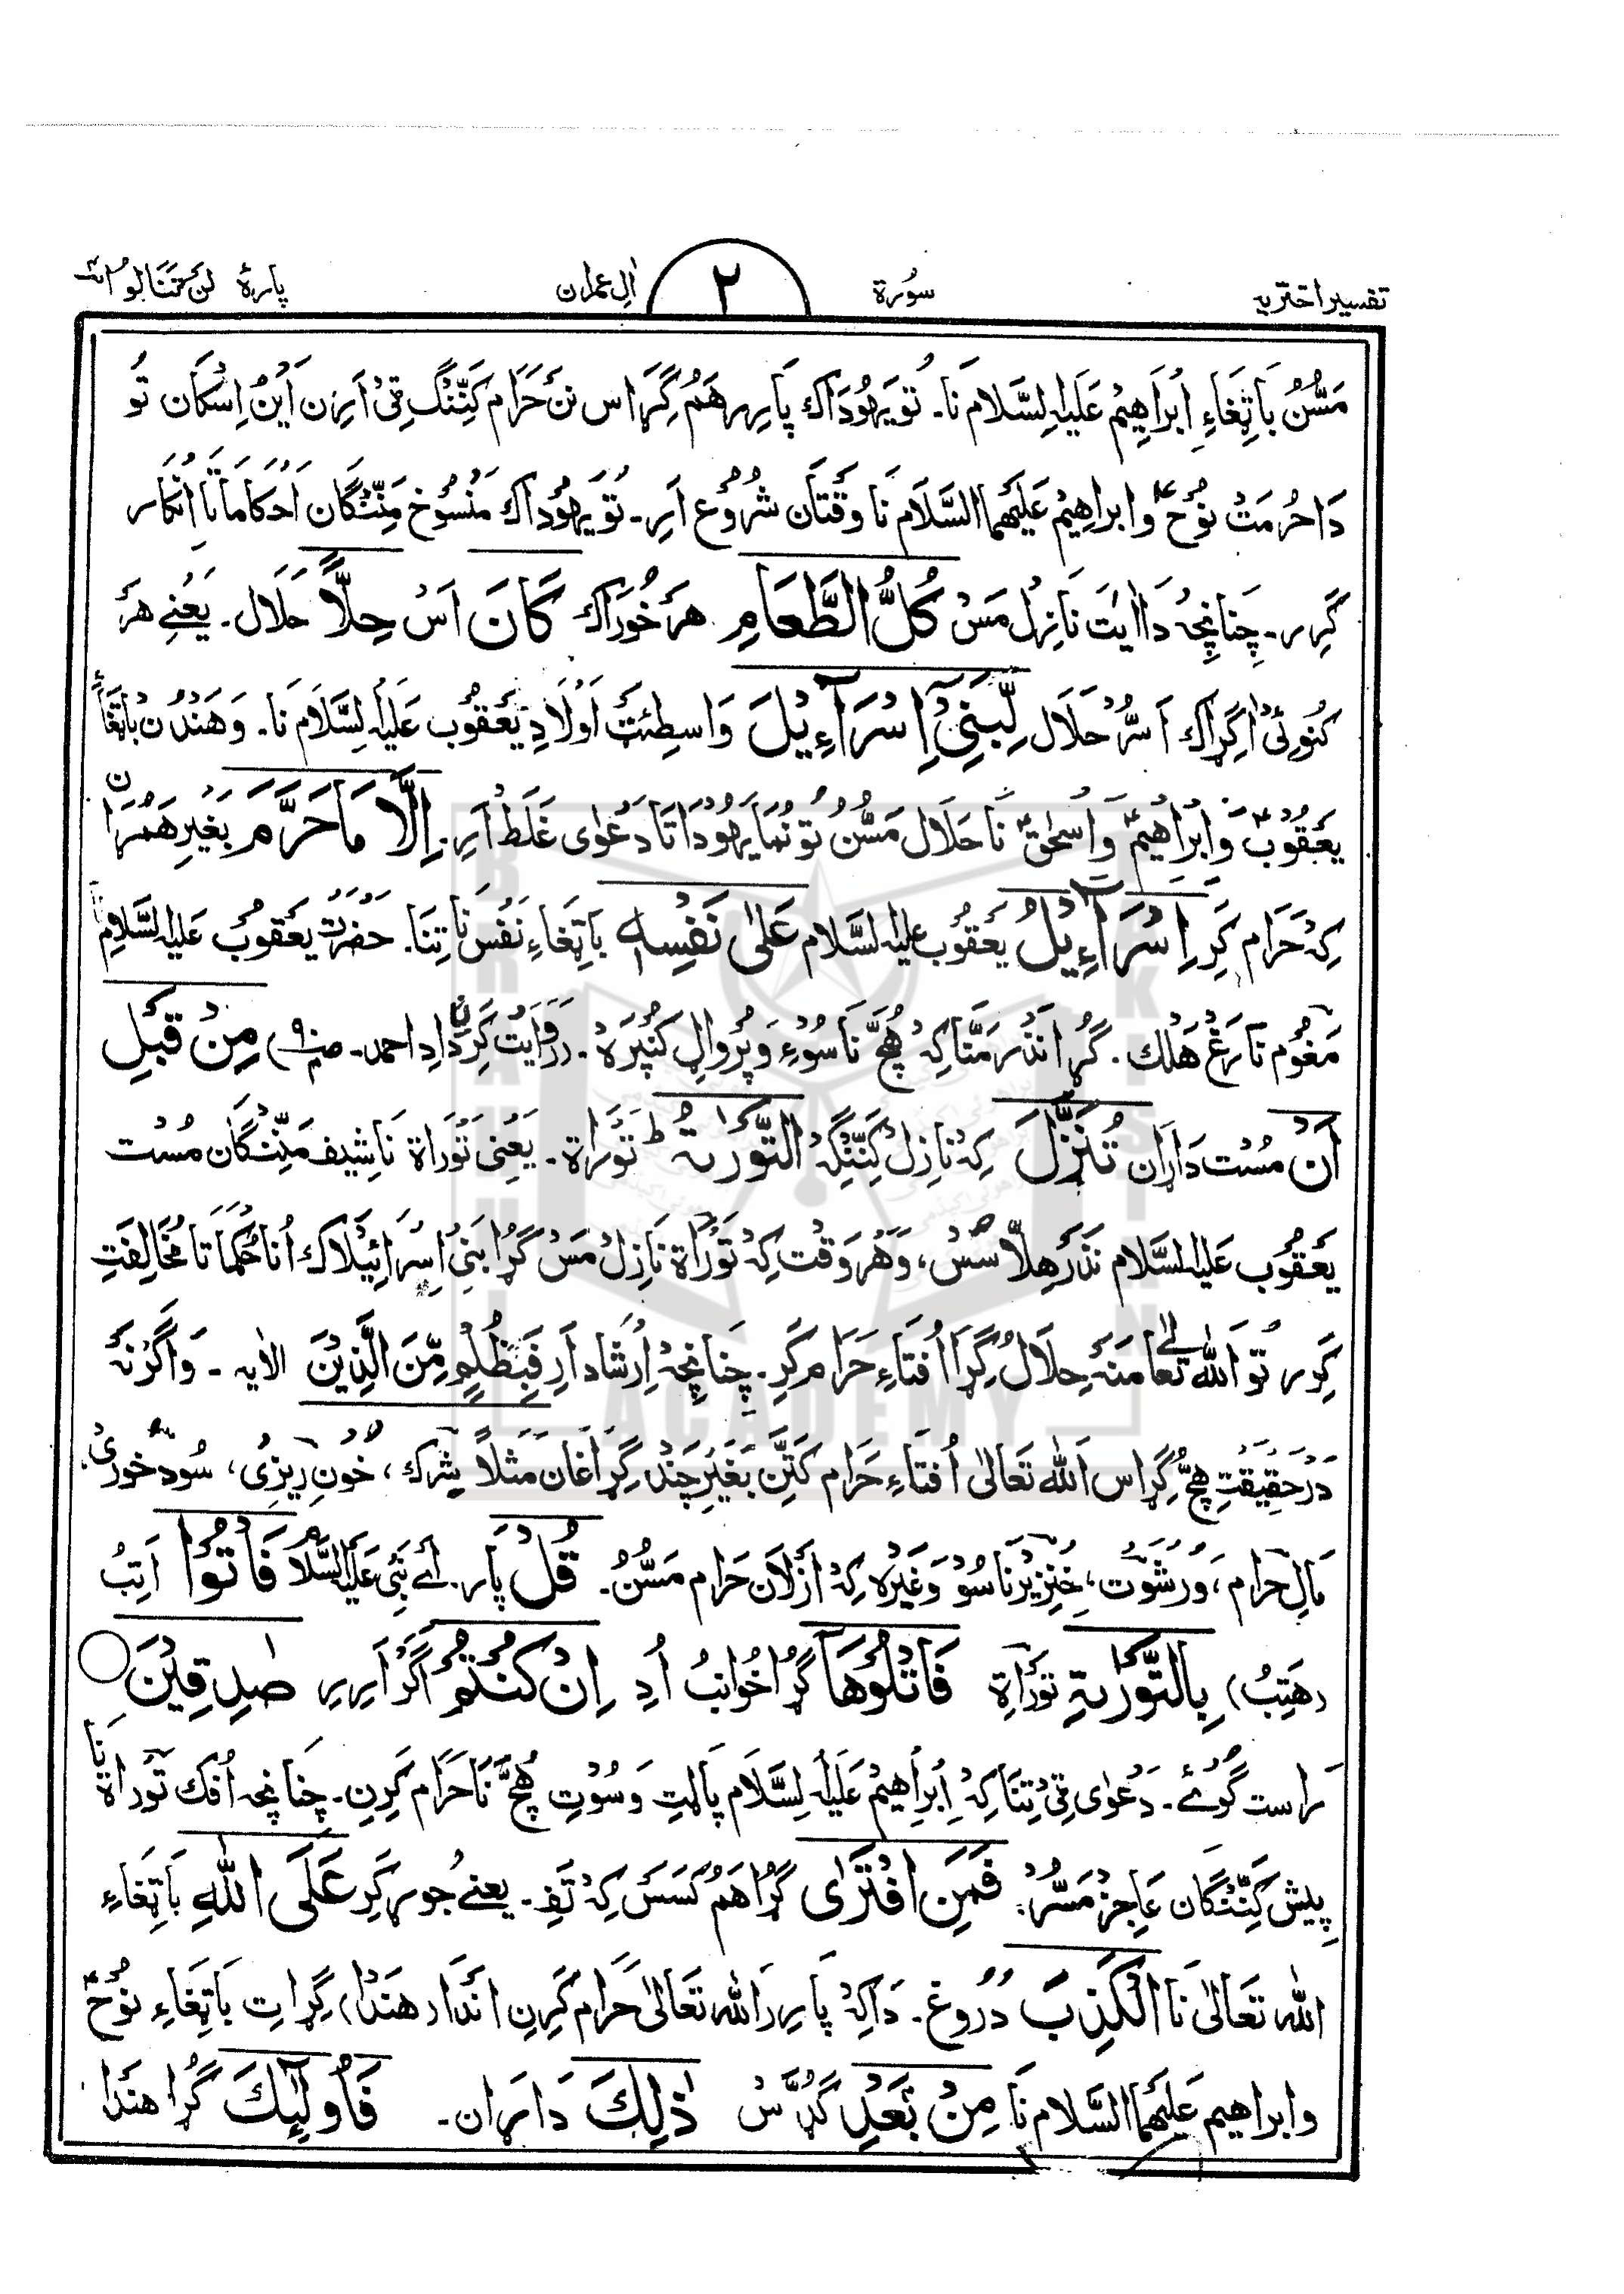 تفسیر اختریہ سُورۃ ۲ اٰلِ عمران پارۂ لَن تَنَالُوا
مَسُّنُ بَاتِغَاءِ اِبْرَاهِیْمُ عَلَیْہِ السَّلَام نَا۔ تُو یَہُودَاک پَاِرِر هَمُ گِڑَاس نَن حَرَام کَنِّنْگ ٹِیْ اَرِن اَیْنُ اِسْکَان تُو
دَا حُرْمَتْ نُوْحؑ و ابراھِیْم عَلَیْہِمَا السَّلَام نَا وَقْتَان شُرُوْع اَرِ۔ تُو یَہُوْدَاک مَنْسُوْخ مَنِّنْگَان اَحْکَامَاتَا اِنْکَار
کَرِر۔ چَنَانْچِہْ دَا اٰیَتْ نَازِلْ مَسْ کُلُّ الطَّعَامِ هَرْ خُوْرَاک کَانَ اَسْ حِلًّا حَلَال۔ یَعْنِے هَرْ
کُنُوئیْ اگِڑَاک اَسُّرْ حَلَال لِّبَنِیْۤ اِسْرَآءِیْلَ وَاسِطِئَتْ اَوْلَادِ یَعْقُوْب عَلَیْہِ السَّلَام نَا۔ وَهَنْدُنْ بَاتِغَاءِ
یَعْقُوْبؑ وَ اِبْرَاھِیْمؑ وَ اِسْحٰقؑ نَا حَلَال مَسُّنْ تُو نُمَا یَہُوْدَاتَا دَعْوٰی غَلَطْ اَرِ۔ اِلَّا مَا حَرَّمَ بَغَیْرِ هَمُڑَان
کِہْ حَرَام کَرِ اِسْرَآءِیْلُ یَعْقُوْب عَلَیْہِ السَّلَام عَلٰی نَفْسِہٖ بَاتِغَاءِ نَفْس نَا تِنَا۔ حَضْرَتْ یَعْقُوْب عَلَیْہِ السَّلَام نَا
مَغُوْم نَا رَغْ هَلْک۔ گُڑا نَذْر مَنَّا کِہْ هُچّ نَا سُوْءِ وَ پُروَالِ کُنْپَرَہْ۔ (رِوَایَتْ کَرِ دَادِ احمد۔ مِنْ قَبْلِ
اَنْ مُسْت دَارَان تُنَزَّلَ کِہْ نَازِلْ کَنِّنْگِہْ التَّوْرٰىةُ ط تَوْرَاۃ۔ یَعْنِی تَوْرَاۃ نَا شِیْف مَنِّنْگَان مُسْت
یَعْقُوْب عَلَیْہِ السَّلَام نَذْر هِلَّا سَسْ، وَ هَرْ وَقْت کِہْ تَوْرَاۃ نَازِلْ مَسْ گُڑا بَنِیْ اِسْرَائِیْلَاک اُنَا حُکْمَاتَا مُخَالِفَتِ
کَرِر تُو اَللّٰہ تَعَالٰے مَنَہْ حِلَالْ گِڑَا اُفْتَاءِ حَرَام کَرِ۔ چَنَانْچِہْ اِرْشَاد اَرِ فَبِظُلْمٍ مِّنَ الَّذِیْنَ الایہ ۔ وَاگَرْنَہْ
دَرْ حَقِیْقَتِ هِچُّ گِڑَاس اَللّٰہ تَعَالٰی اُفْتَاءِ حَرَام کَتَنْ بَغَیْرِ چَنْد گِڑَاغَان مَثَلاً شِرْک، خُون رِیزِیْ، سُود خورِیْ،
مَالِ حَرَام، وَ رِشْوَتْ، خِنْزِیْر نَا سُوْ وَغَیْرِہ کِہْ اَزَلَان حَرَام مَسُّنُ۔ قُلْ پَارِ۔ اَے نَبِیْ عَلَیْہِ السَّلَام فَاْتُوْا اَتِبُ
(هَتِبُ) بِالتَّوْرٰىةِ تَوْرَاۃِ فَاتْلُوْهَاۤ گُڑا خُوَانِبُ اُدِ اِنْ كُنْتُمْ اَگَرْ اَرِیرِ صٰدِقِیْنَ ○
رَاست گُوئے۔ دَعْوٰی ٹِیْ تِنَا کِہْ اِبْرَاھِیْم عَلَیْہِ السَّلَام پَالْتِ وَ سُوْتِ هُچّ نَا حَرَام کَرِن۔ چَنَانْچِہ اُفک تَوْرَاۃ نَا
پِیْش کَنِّنْگَان عَاجِزْ مَسُّر۔ فَمَنِ افْتَرٰی گُڑا هَمْ کَسَسْ کِہْ تَفِ۔ یعنے جُوڑ کَرِ عَلَی اللّٰهِ بَاتِغَاءِ
اللّٰہ تَعَالٰی نَا الْکَذِبَ دُرُوْغ۔ دَاکِہْ پَارِیر اللّٰہ تَعَالٰی حَرَام کَرِن اَنْدَا (هَنْدَا) گِڑَاتِ بَاتِغَاءِ نُوْحؑ
وابراھیم عَلَیْہِمَا السَّلَام نَا مِنْ بَعْدِ گُدُّسْ ذٰلِکَ دَارَان۔ فَاُولٰٓئِکَ گُڑا هَنْدَا
BRAHUI AKADEMY PAKISTAN